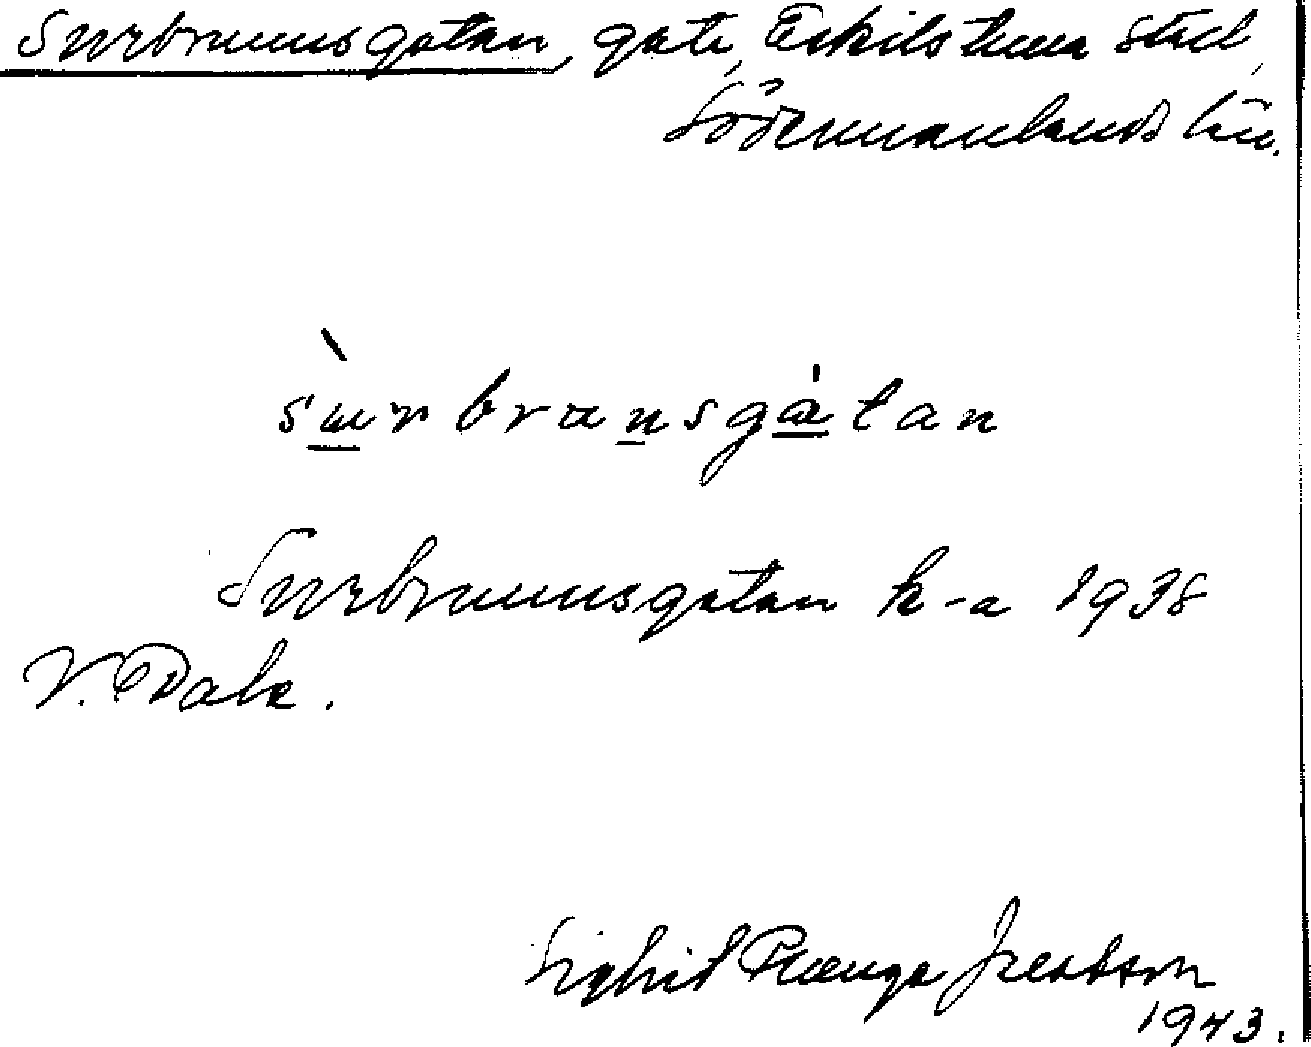 Surbrunnsgatan, gata, Eskilstuna stad,
Södermanlands län.
sùrbrunsgátan
Surbrunnsgatan k-a 1938
V. Dala.
Sigbrit Plænge Jacobson
1943.